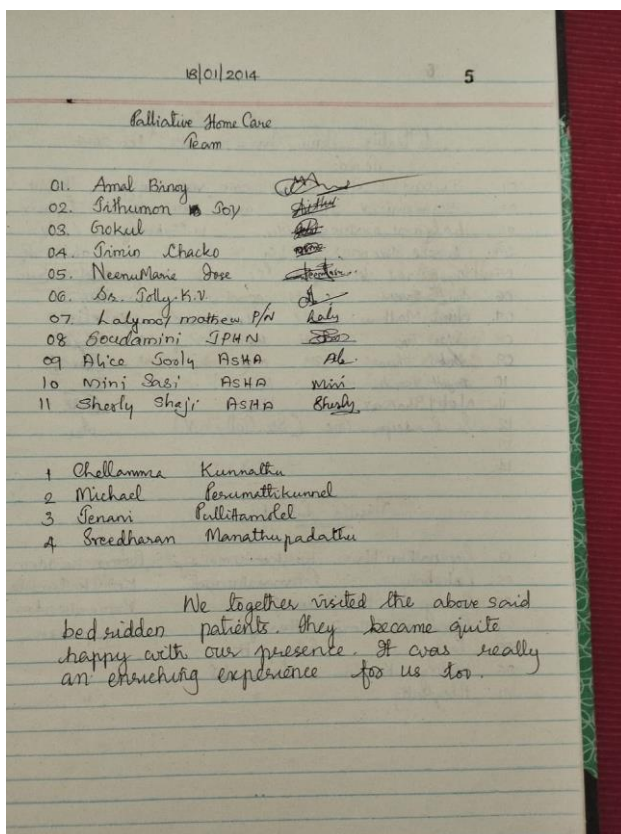 18/01/2014 5
Palliative Home Care
Team
01. Amal Binoy
02. Jithumon Joy
03. Gokul
04. Jimin Chacko
05. Neenu Marie Jose
06. Dr. Jolly. K.V.
07. Lalymol mathew P/N Laly
08 Soudamini JPHN
09 Alice Jooly ASHA Ale
10 Mini Sasi ASHA Mini
11 Sherly Shaji ASHA Sherly
1 Chellamma Kunnathu
2 Michael Perumattikunnel
3 Jenani
4 Sreedharan Manathupadathu
We together visited the above said
bed ridden patients. they became quite
happy with our presence. It was really
an enriching experience for us too.